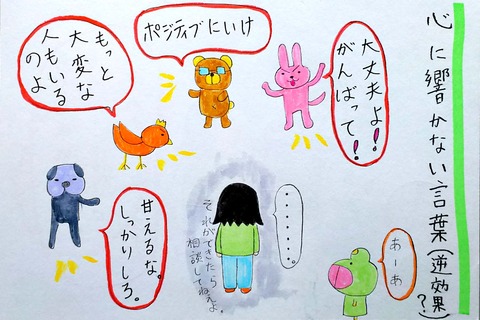 心に響かない言葉(逆効果?)
大丈夫よ!
がんばって!
ポジティブにいけ
もっと
大変な
人もいる
のよ
・・・・・・・・。
それができたら
相談してねぇよ。
甘えるな。
しっかりしろ。
あーあ